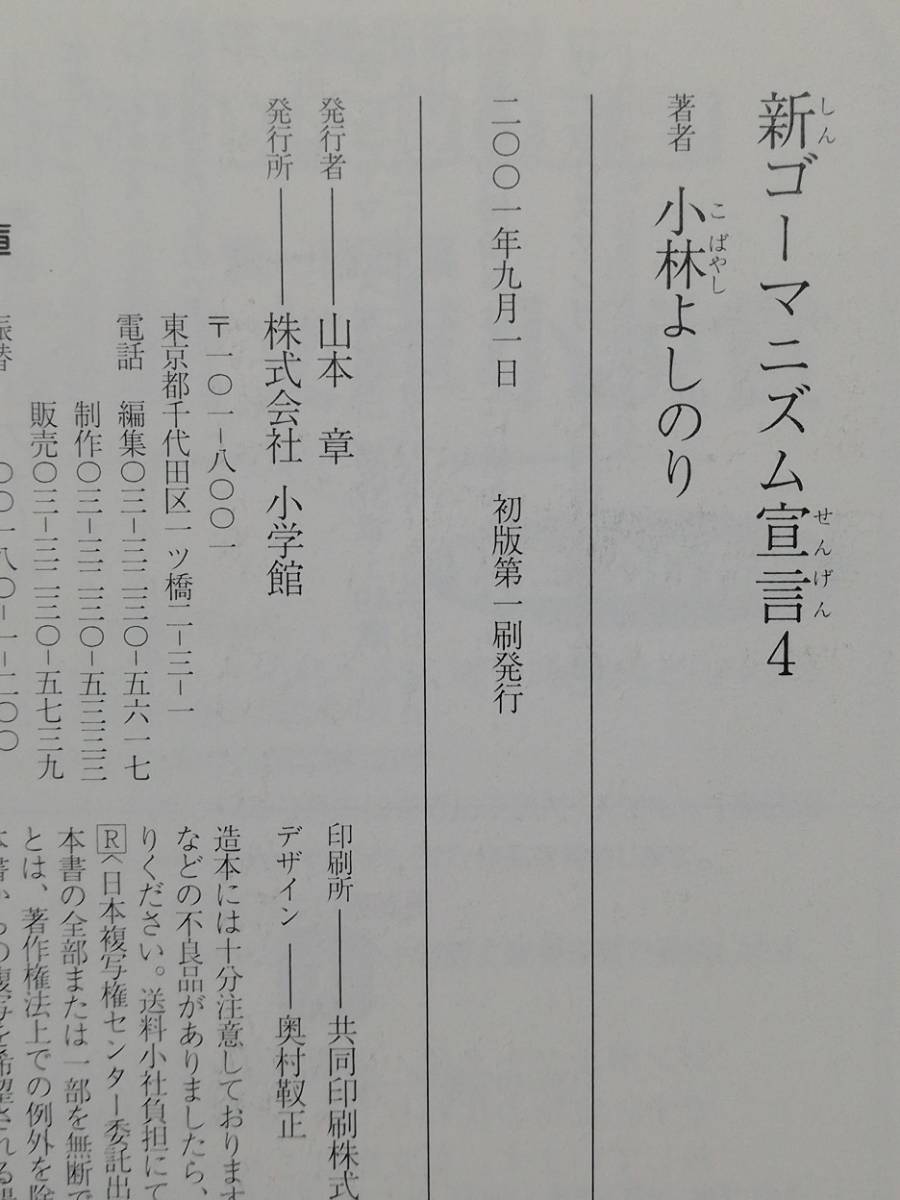 新ゴーマニズム宣言4
しん
せんげん
著者 小林よしのり
こばやし
二〇〇一年九月一日 初版第一刷発行
発行者――山本 章
発行所――株式会社 小学館
〒一〇一-八〇〇一
東京都千代田区一ツ橋二-三-一
電話 編集〇三-三二三〇-五六一七
制作〇三-三二三〇-五三三三
販売〇三-三二三〇-五七三九
振替 〇〇一八〇-一-二〇〇
印刷所――共同印刷株式
デザイン――奥村靫正
造本には十分注意しております
などの不良品がありましたら、
りください。送料小社負担にて
R〈日本複写権センター委託出
本書の全部または一部を無断で
とは、著作権法上での例外を除